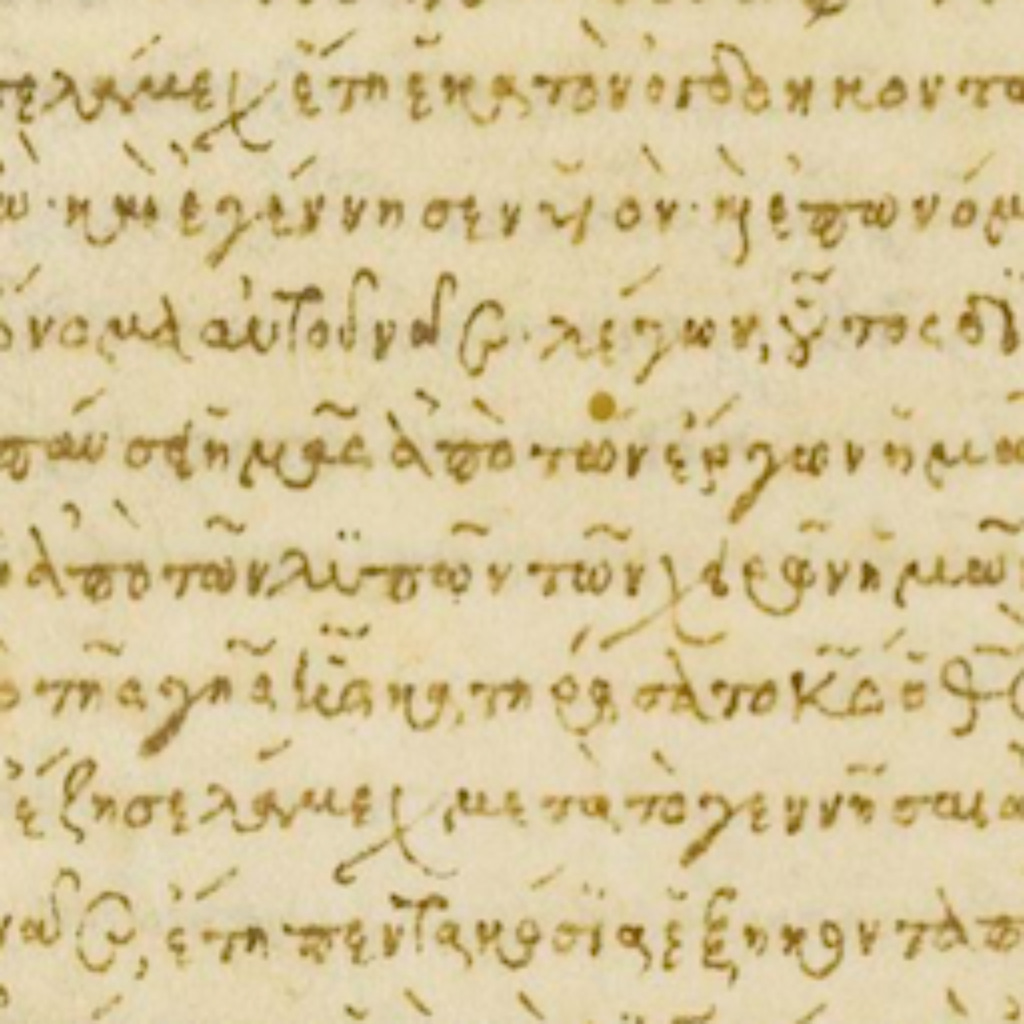 λάμεχ ἔτη ἑκατὸν ὀγδοήκοντα
καὶ ἐγέννησεν υἱὸν· καὶ ἐπωνόμ
ὄνομα αὐτοῦ νῶε· λέγων, οὗτος δι
παύσει ἡμᾶς ἀπὸ τῶν ἔργων ἡμῶ
ἀπὸ τῶν λυπῶν τῶν χειρῶν ἡμῶν
τῆς γῆς ἧς κατηράσατο κς ὁ θς
ἔζησε λάμεχ μετὰ τὸ γεννῆσαι α
νῶε, ἔτη πεντακόσια ἑξήκοντα π